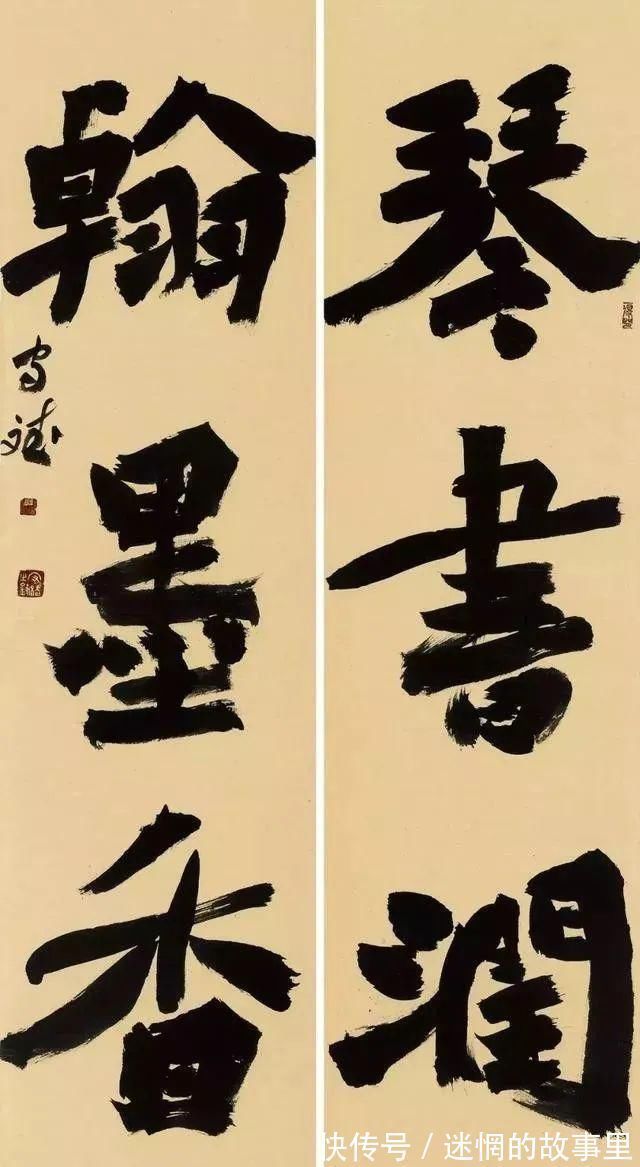 琴書潤
翰墨香
守斌
快传号／迷惘的故事里